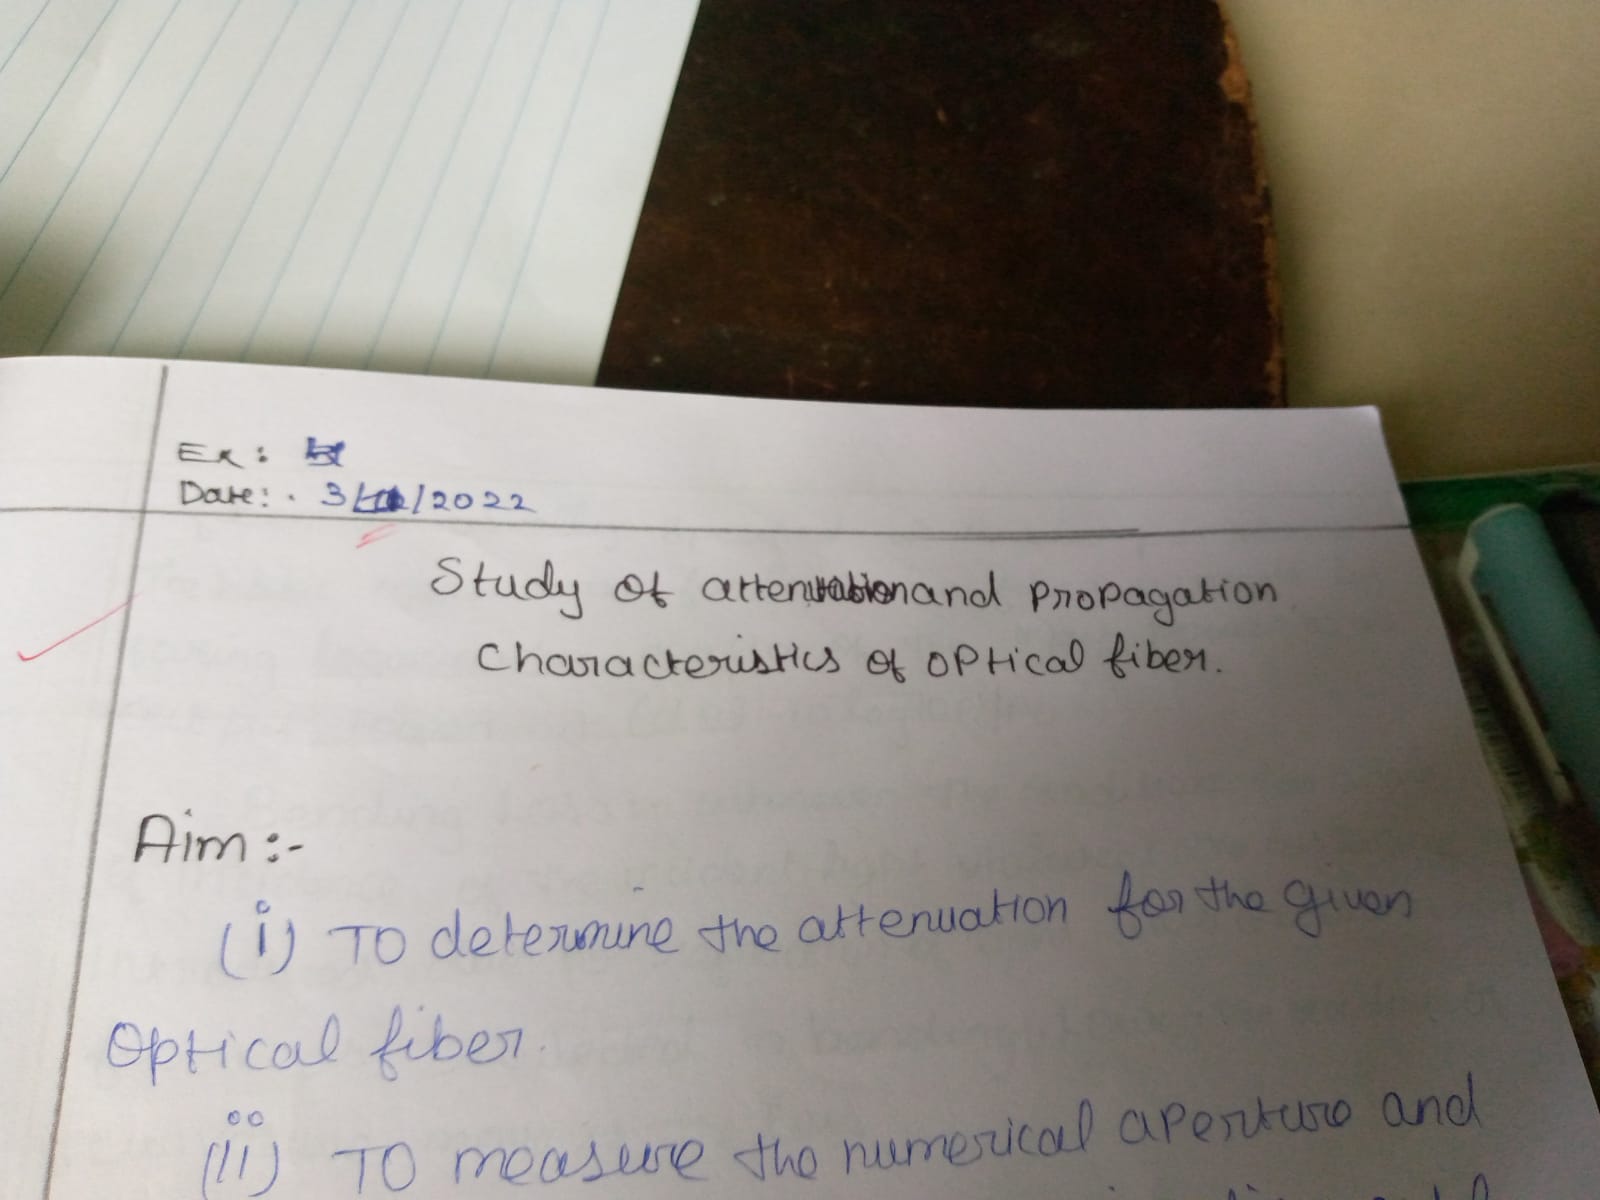 Ex:
Date: . 3/ /2022
Study of attenuation and propagation
Characteristics of optical fiber.
Aim :-
(i) To determine the attenuation for the given
Optical fiber.
(ii) To measure the numerical aperture and